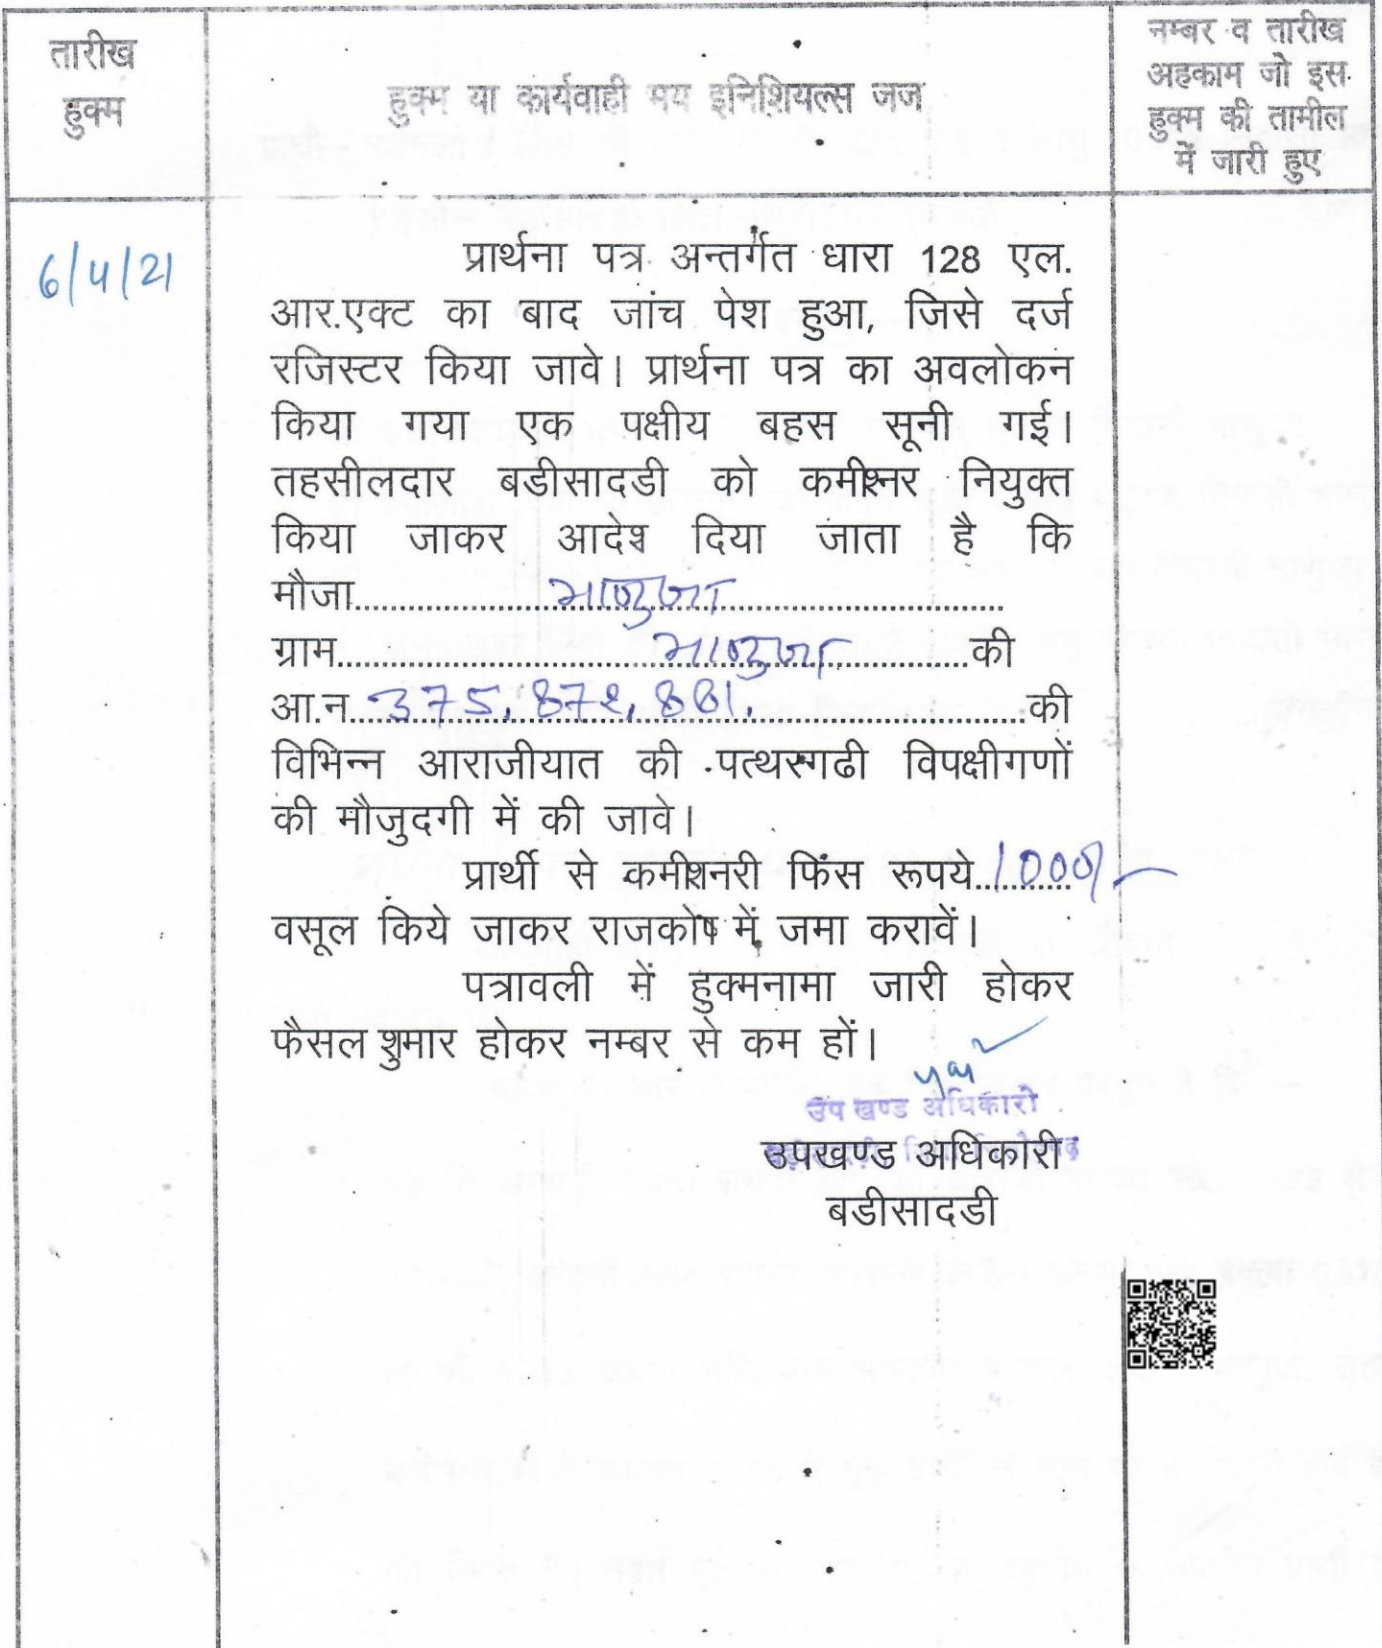 तारीख
हुक्म
हुक्म या कार्यवाही मय इनिशियल्स जज
नम्बर व तारीख
अहकाम जो इस
हुक्म की तामील
में जारी हुए
6/4/21
प्रार्थना पत्र अन्तर्गत धारा 128 एल.
आर.एक्ट का बाद जांच पेश हुआ, जिसे दर्ज
रजिस्टर किया जावे। प्रार्थना पत्र का अवलोकन
किया गया एक पक्षीय बहस सूनी गई।
तहसीलदार बडीसादडी को कमीश्नर नियुक्त
किया जाकर आदेश दिया जाता है कि
मौजा
ग्राम की
आ.न. 375, 872, 881. की
विभिन्न आराजीयात की पत्थरगढी विपक्षीगणों
की मौजुदगी में की जावे।
प्रार्थी से कमीशनरी फिंस रूपये 1000/-
वसूल किये जाकर राजकोष में जमा करावें।
पत्रावली में हुक्मनामा जारी होकर
फैसल शुमार होकर नम्बर से कम हों।
उप खण्ड अधिकारी
उपखण्ड अधिकारी
बडीसादडी